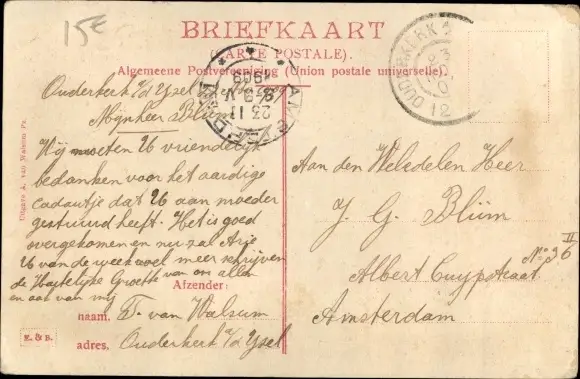 15€
BRIEFKAART
(CARTE POSTALE).
Algemeene Postvereeniging (Union postale universelle).
Ouderkerk a/d Ysel
Mijnheer Blüm
Wij moeten U vriendelijk
bedanken voor het aardige
cadautje dat U aan moeder
gestuurd heeft. Het is goed
overgekomen en nu zal Arie
U van de week wel meer schrijven
de Hartelijke Groete van ons allen
en ook van mij
Afzender:
naam. T. van Walsum
adres. Ouderkerk a/d Ysel
Aan den Weledelen Heer
J. G. Blüm
Albert Cuypstraat No 36 II
Amsterdam
OUDERKERK
12
AMSTERDAM
Uitgave A. van Walsum Pz.
E. & B.